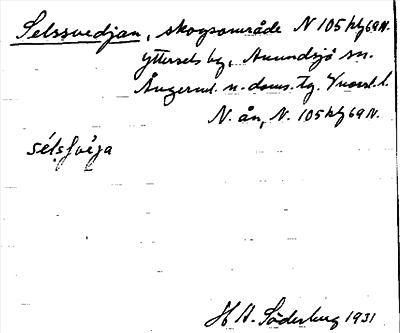 Selssvedjan, skogsområde N 105 kbf 69 N.
Yttersels by, Anundsjö sn.
Ångerml. n. doms. tg. Vnorrl. l.
N. ån, N. 105 kbf 69 N.
H A. Söderberg 1931